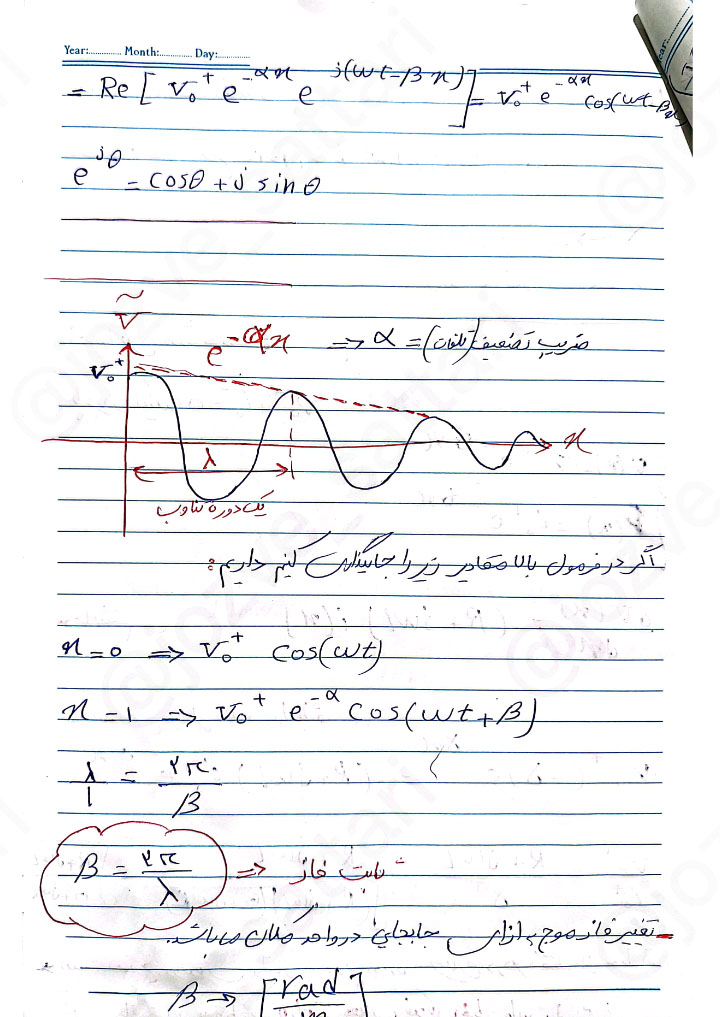 Year:.............. Month:.............. Day:..............
= Re [ V₀⁺ e^-αx e^j(ωt-βx) ] = V₀⁺ e^-αx cos(ωt-βx)
e^jθ = cosθ + j sinθ
Ṽ
e^-αx => α = (تلفات) ضریب تضعیف
V₀⁺
x
λ
یک دوره تناوب
اگر در فرمول بالا مقادیر زیر را جایگذاری کنیم داریم:
x = 0 => V₀⁺ cos(ωt)
x = 1 => V₀⁺ e^-α cos(ωt+β)
λ/1 = ۲π/β
β = ۲π/λ => ثابت فاز
تغییر فاز موج به ازای جابجایی در واحد مکان می‌باشد.
β → [rad/m]